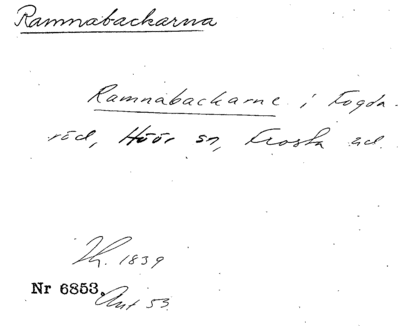 Ramnabackarna
Ramnabackarne i Fogda-
röd, Höör sn, Frosta hd.
Th. 1839
Nr 6853. Ant 53.